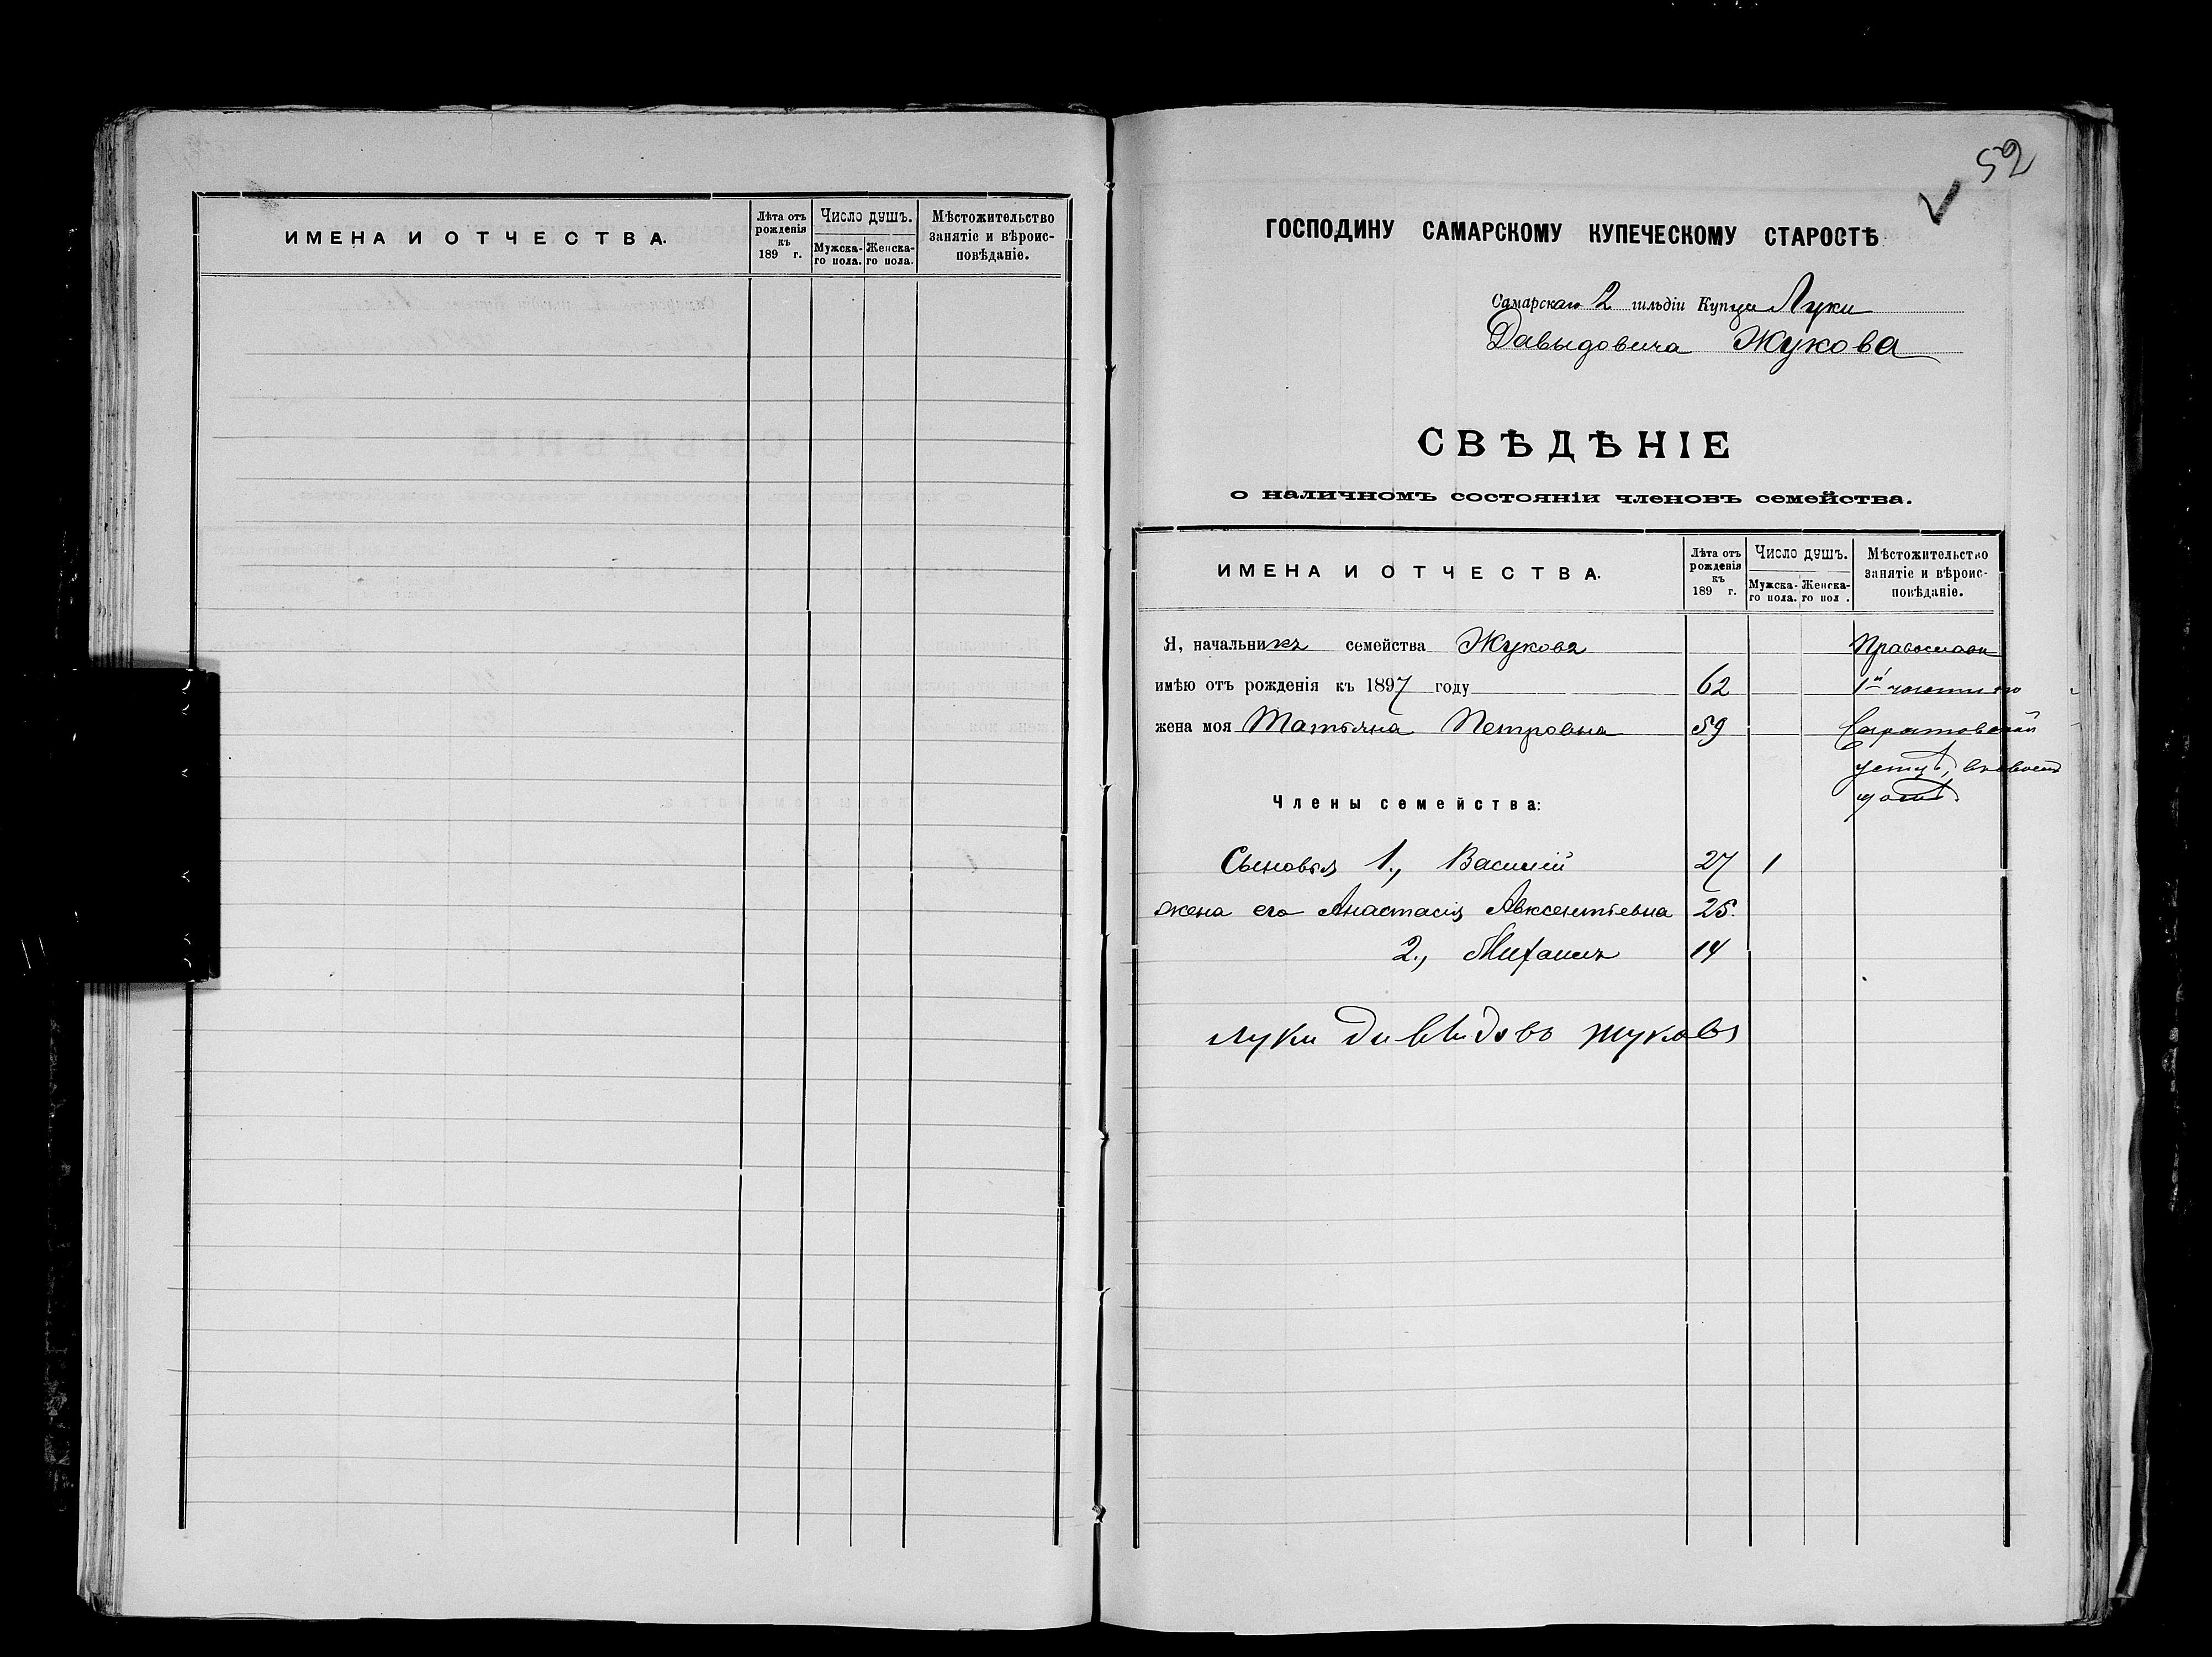 ИМЕНА И ОТЧЕСТВА.
Лѣта отъ рожденія къ 189 г.
Число душъ.
Мужска-го пола.
Женска-го пола.
Мѣстожительство занятіе и вѣроис-повѣданіе.
52
ГОСПОДИНУ САМАРСКОМУ КУПЕЧЕСКОМУ СТАРОСТѢ
Самарскаго 2 гильдіи Купца Луки
Давыдовича Жукова
СВѢДѢНІЕ
о наличномъ состояніи членовъ семейства.
ИМЕНА И ОТЧЕСТВА.
Лѣта отъ рожденія къ 189 г.
Число душъ.
Мужска-го пола.
Женска-го пол .
Мѣстожительство занятіе и вѣроис-повѣданіе.
Я, начальникъ семейства Жуковъ Православн
имѣю отъ рожденія къ 1897 году 62 1й части по
жена моя Татьяна Петровна 59 Саратовской
улицѣ, въ своемъ
домѣ.
Члены семейства:
Сыновья 1., Василій 27 1
жена его Анастасія Авксентіевна 25.
2., Михаилъ 14
Луки Давыдовъ Жуковъ